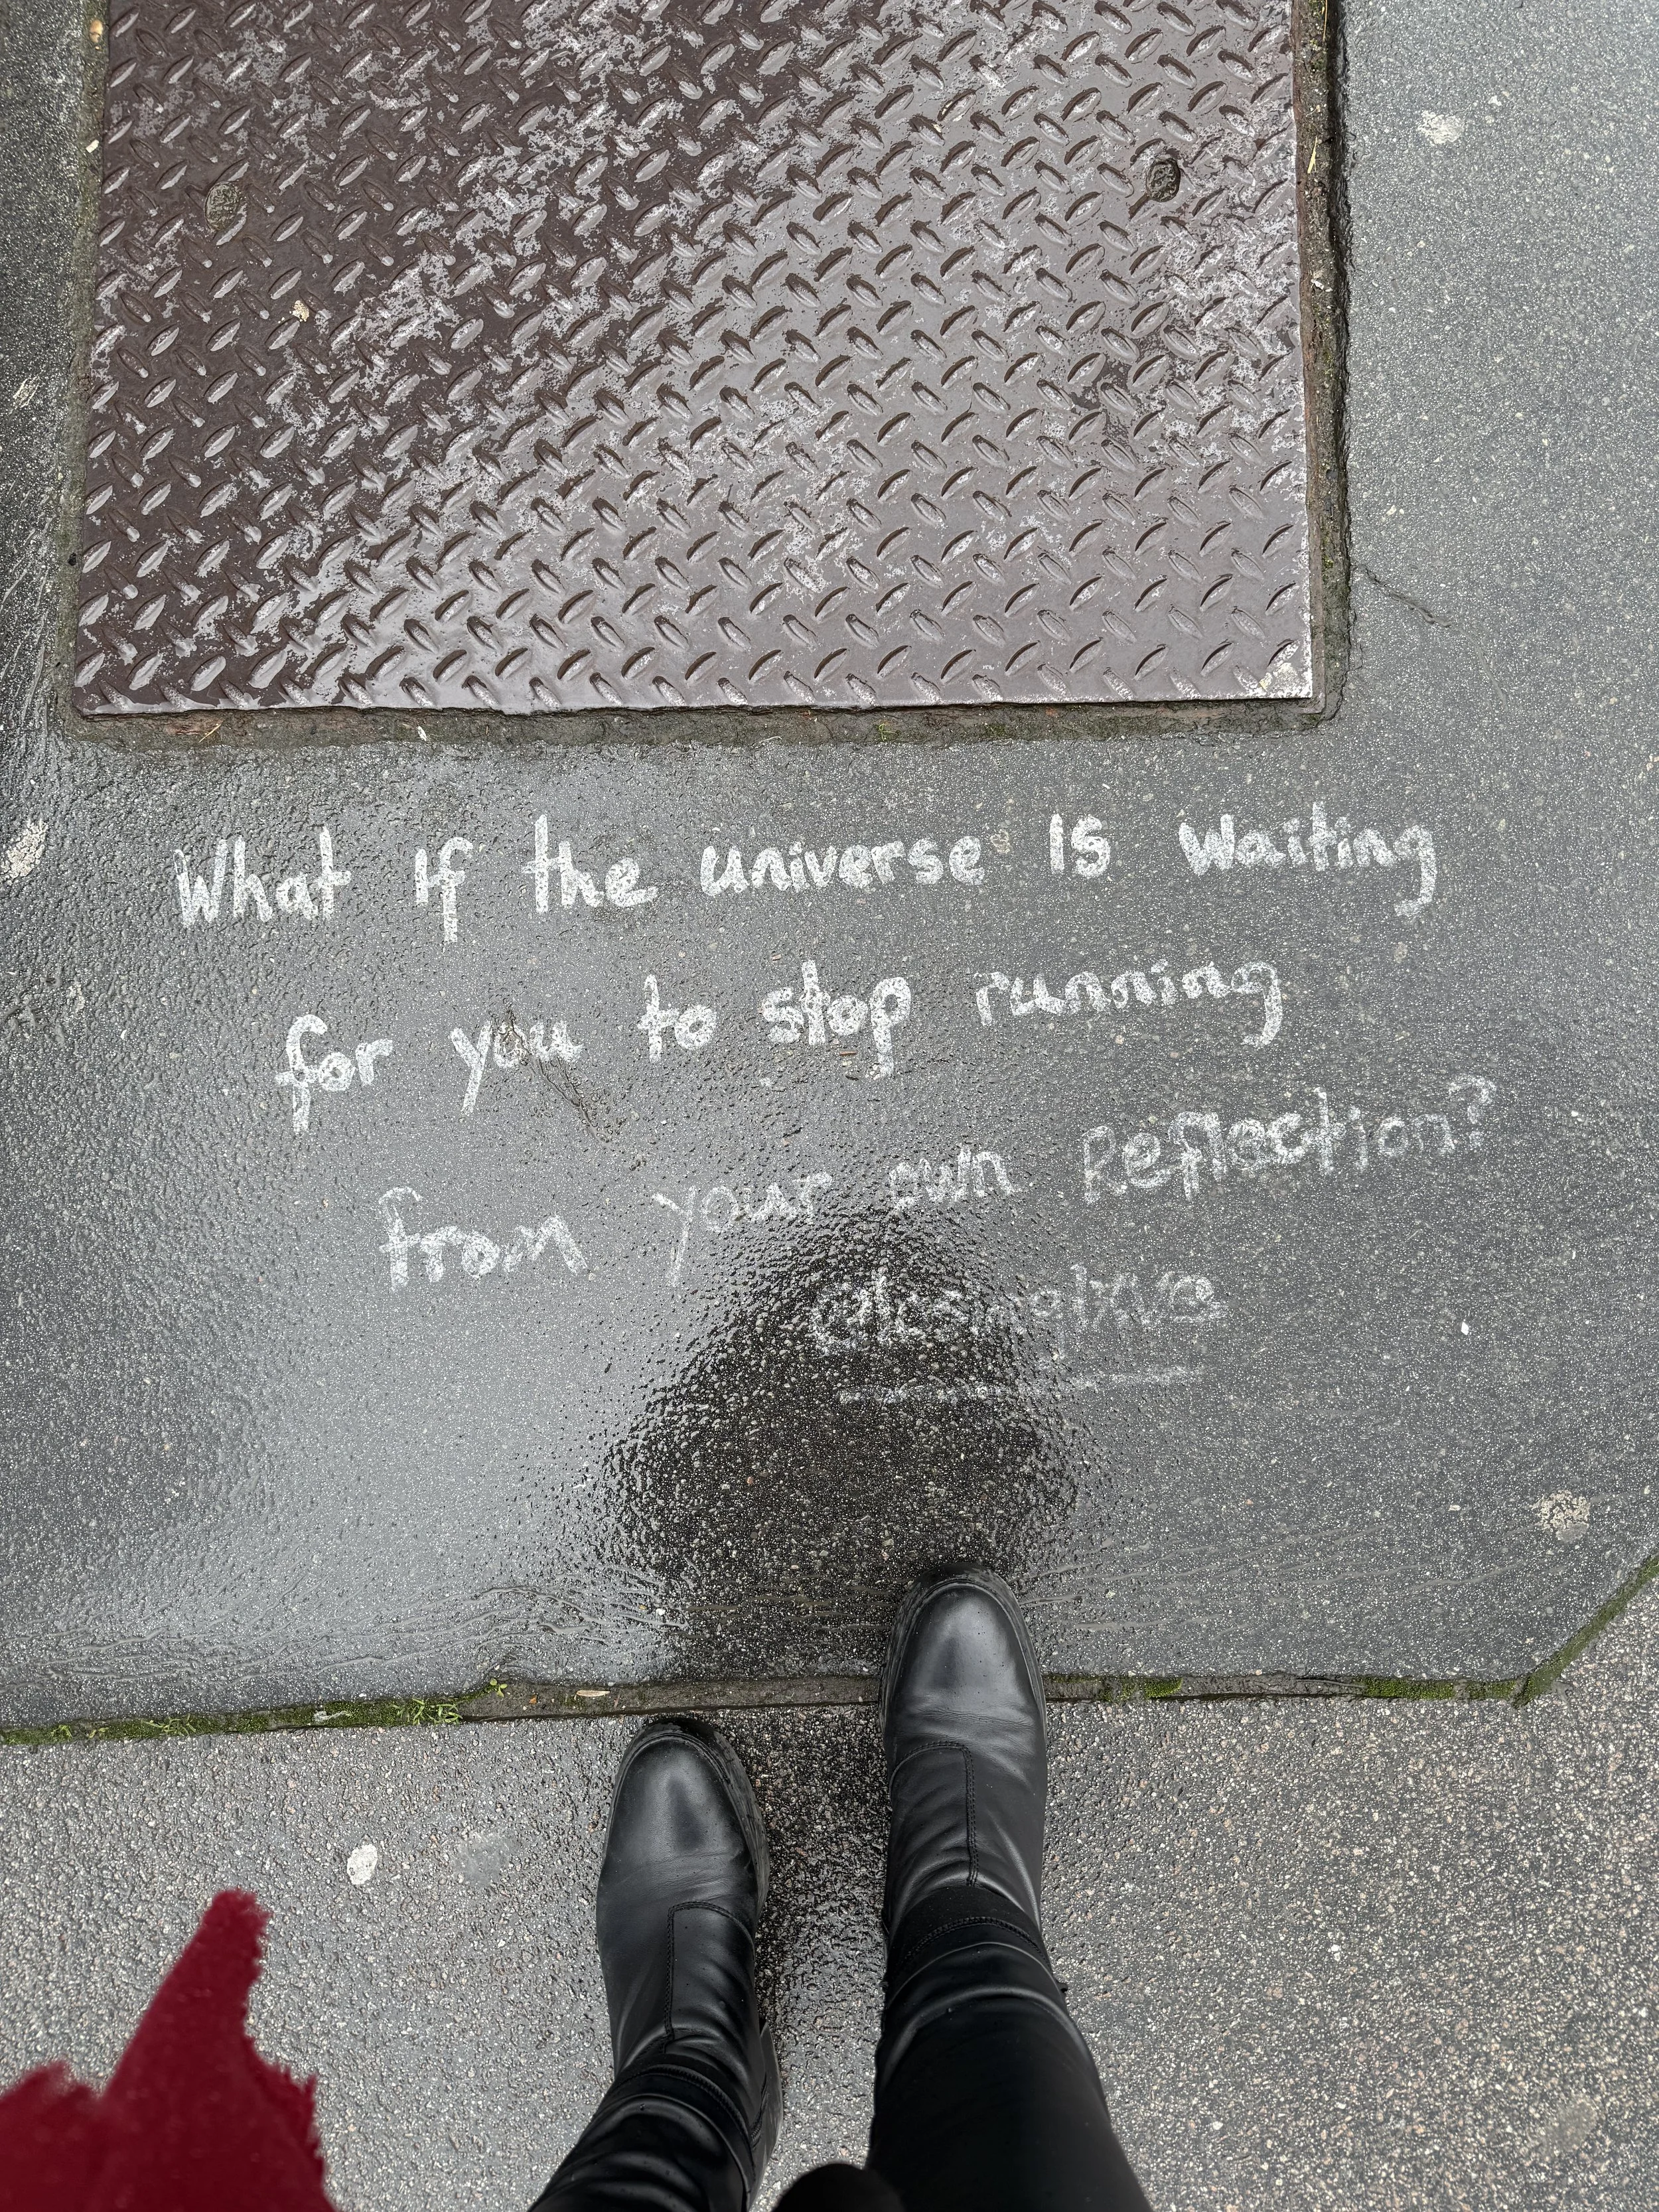 What If the universe Is Waiting
for you to stop running
from your own Reflection?